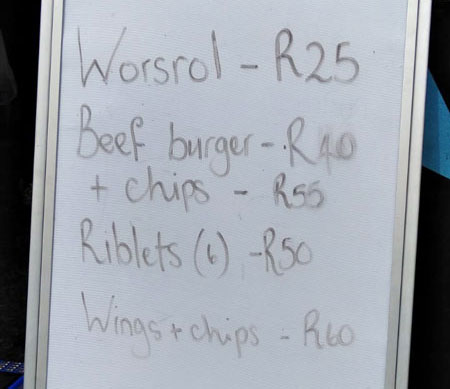 Worsrol - R25
Beef burger - R40
+ chips - R55
Riblets (6) - R50
Wings + chips - R60